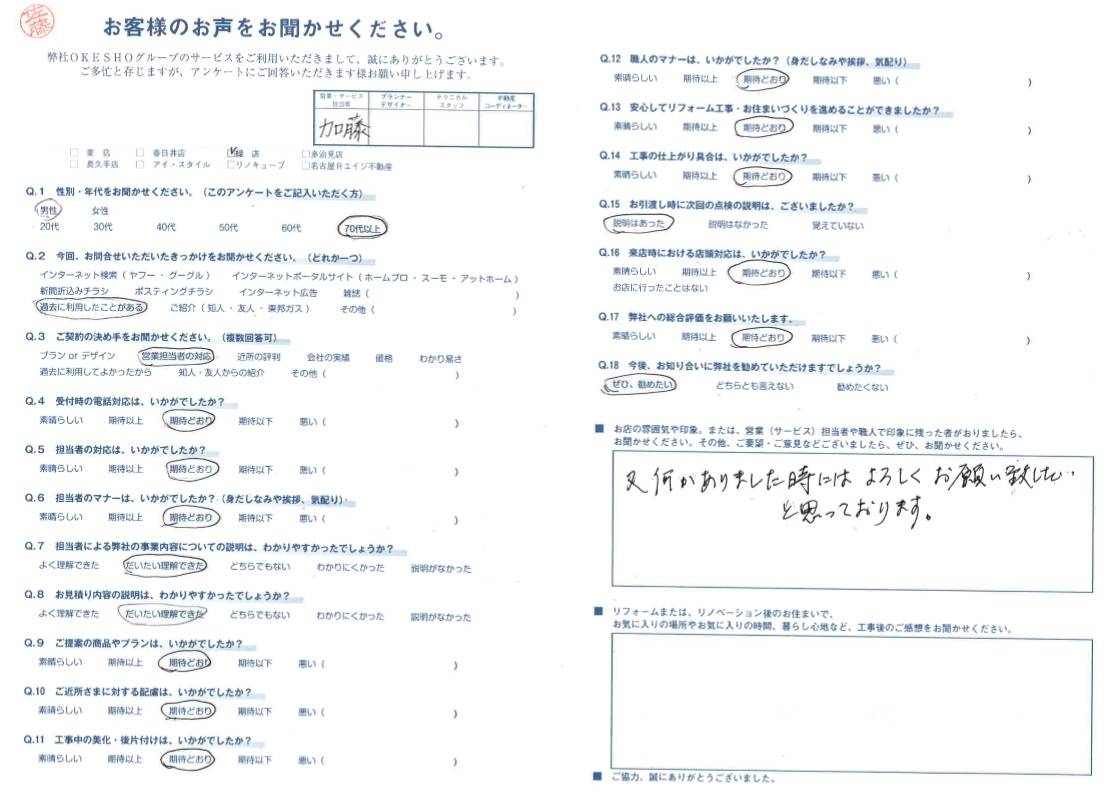 佐藤
お客様のお声をお聞かせください。
弊社OKESHOグループのサービスをご利用いただきまして、誠にありがとうございます。
ご多忙と存じますが、アンケートにご回答いただきます様お願い申し上げます。
営業・サービス担当者 プランナーデザイナー テクニカルスタッフ 不動産コーディネーター
加藤
□ 東店 □ 春日井店 ☑緑 店 □多治見店
□ 長久手店 □ アイ・スタイル □リノキューブ □名古屋Rエイジ不動産
Q.1 性別・年代をお聞かせください。（このアンケートをご記入いただく方）
男性 女性
20代 30代 40代 50代 60代 70代以上
Q.2 今回、お問合せいただいたきっかけをお聞かせください。（どれか一つ）
インターネット検索（ ヤフー ・ グーグル ） インターネットポータルサイト（ ホームプロ ・ スーモ ・ アットホーム ）
新聞折込みチラシ ポスティングチラシ インターネット広告 雑誌（ ）
過去に利用したことがある ご紹介（ 知人 ・ 友人 ・ 東邦ガス ） その他（ ）
Q.3 ご契約の決め手をお聞かせください。（複数回答可）
プラン or デザイン 営業担当者の対応 近所の評判 会社の実績 価格 わかり易さ
過去に利用してよかったから 知人・友人からの紹介 その他（ ）
Q.4 受付時の電話対応は、いかがでしたか？
素晴らしい 期待以上 期待どおり 期待以下 悪い（ ）
Q.5 担当者の対応は、いかがでしたか？
素晴らしい 期待以上 期待どおり 期待以下 悪い（ ）
Q.6 担当者のマナーは、いかがでしたか？（身だしなみや挨拶、気配り）
素晴らしい 期待以上 期待どおり 期待以下 悪い（ ）
Q.7 担当者による弊社の事業内容についての説明は、わかりやすかったでしょうか？
よく理解できた だいたい理解できた どちらでもない わかりにくかった 説明がなかった
Q.8 お見積り内容の説明は、わかりやすかったでしょうか？
よく理解できた だいたい理解できた どちらでもない わかりにくかった 説明がなかった
Q.9 ご提案の商品やプランは、いかがでしたか？
素晴らしい 期待以上 期待どおり 期待以下 悪い（ ）
Q.10 ご近所さまに対する配慮は、いかがでしたか？
素晴らしい 期待以上 期待どおり 期待以下 悪い（ ）
Q.11 工事中の美化・後片付けは、いかがでしたか？
素晴らしい 期待以上 期待どおり 期待以下 悪い（ ）
Q.12 職人のマナーは、いかがでしたか？（身だしなみや挨拶、気配り）
素晴らしい 期待以上 期待どおり 期待以下 悪い（ ）
Q.13 安心してリフォーム工事・お住まいづくりを進めることができましたか？
素晴らしい 期待以上 期待どおり 期待以下 悪い（ ）
Q.14 工事の仕上がり具合は、いかがでしたか？
素晴らしい 期待以上 期待どおり 期待以下 悪い（ ）
Q.15 お引渡し時に次回の点検の説明は、ございましたか？
説明はあった 説明はなかった 覚えていない
Q.16 来店時における店頭対応は、いかがでしたか？
素晴らしい 期待以上 期待どおり 期待以下 悪い（ ）
お店に行ったことはない
Q.17 弊社への総合評価をお願いいたします。
素晴らしい 期待以上 期待どおり 期待以下 悪い（ ）
Q.18 今後、お知り合いに弊社を勧めていただけますでしょうか？
ぜひ、勧めたい どちらとも言えない 勧めたくない
■ お店の雰囲気や印象。または、営業（サービス）担当者や職人で印象に残った者がおりましたら、
お聞かせください。その他、ご要望・ご意見などございましたら、ぜひ、お聞かせください。
又何かありました時には よろしく お願い致したい
と思っております。
■ リフォームまたは、リノベーション後のお住まいで、
お気に入りの場所やお気に入りの時間、暮らし心地など、工事後のご感想をお聞かせください。
■ ご協力、誠にありがとうございました。